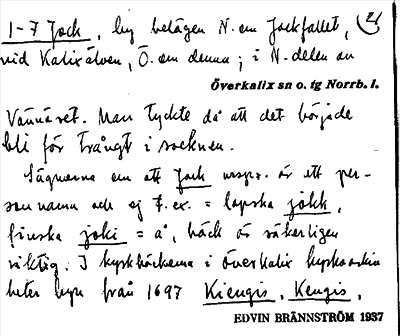 1-7 Jock, by belägen N. om Jockfallet, 2)
vid Kalixälven, Ö. om denna; i N-delen av
Överkalix sn o. tg Norrb. l.
Vännäset. Man tyckte då att det började
bli för trångt i socknen.
Sägnerna om att Jock urspr. är ett per-
sonnamn och ej t.ex. = lapska jokk,
finska joki = å, bäck är säkerligen
riktig. I kyrkböckerna i Överkalix kyrkoarkiv
heter byn från 1697 Kiengis, Kengis,
EDVIN BRÄNNSTRÖM 1937